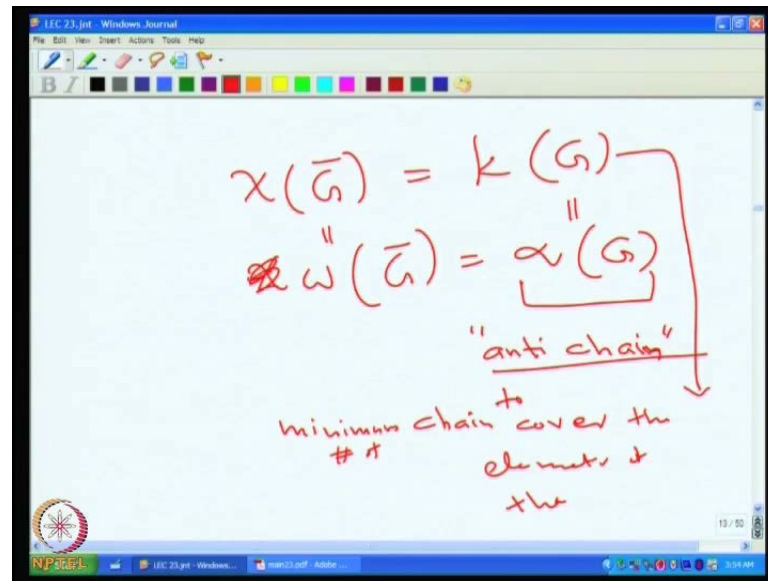 LEC 23.jnt - Windows Journal
File Edit View Insert Actions Tools Help
B I
χ(G̅) = k(G)
" "
ω(G̅) = α(G)
"anti chain"
to
minimum chain cover the
# of elements of
the
13 / 50
NPTEL LEC 23.jnt - Windows... main23.pdf - Adobe ... 3:54 AM